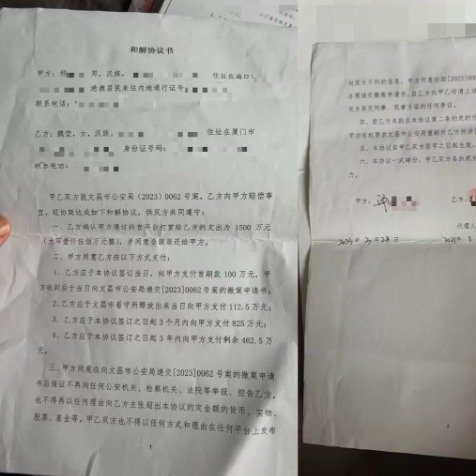 和解协议书
甲方：邢 男，汉族， 住址在海口
港澳居民来往内地通行证号
联系电话：
乙方：魏莹，女，汉族， 住址在厦门市
身份证号码：
联系电话：
甲乙双方就文昌市公安局（2023）0062号案，乙方向甲方赔偿事
宜，经协商达成如下和解协议，供双方共同遵守：
一、乙方确认甲方通过抖音平台打赏给乙方的支出为1500万元
（大写壹仟伍佰万元整），并同意全额返还给甲方。
二、甲方同意乙方按以下方式支付：
1、乙方应于本协议签订当日，向甲方支付首期款100万元，甲
方收到后于当日向文昌市公安局递交[2023]0062号案的撤案申请书；
2、乙方应于文昌市看守所释放出来当日向甲方支付112.5万元；
3、乙方应于本协议签订之日起3个月内向甲方支付825万元；
4、乙方应于本协议签订之日起3年内向甲方支付剩余462.5万
元；
三、甲方同意在向文昌市公安局递交[2023]0062号案的撤案申请
书后保证不再向任何公安机关、检察机关、法院等举报、控告乙方，
也不得再以任何理由向乙方主张超出本协议约定金额的货币、实物、
股票、基金等，甲乙双方也不得以任何方式和理由在任何平台上发布
1
对双方不利的信息。甲方同意协助[2023]
会继递交撤案申请书。自乙方向甲方付清上述
双方再无刑事、民事方面的任何争议。
四、若乙方未能在本协议第二条约定的付
甲方有权要求文昌市公安局重新对乙方所涉
五、本协议自甲乙双方签字之日起生效。
六、本协议一式肆份，甲乙双方各执贰
力。
甲方： 乙方：
代理人
2023年2月28日 2023年3
2